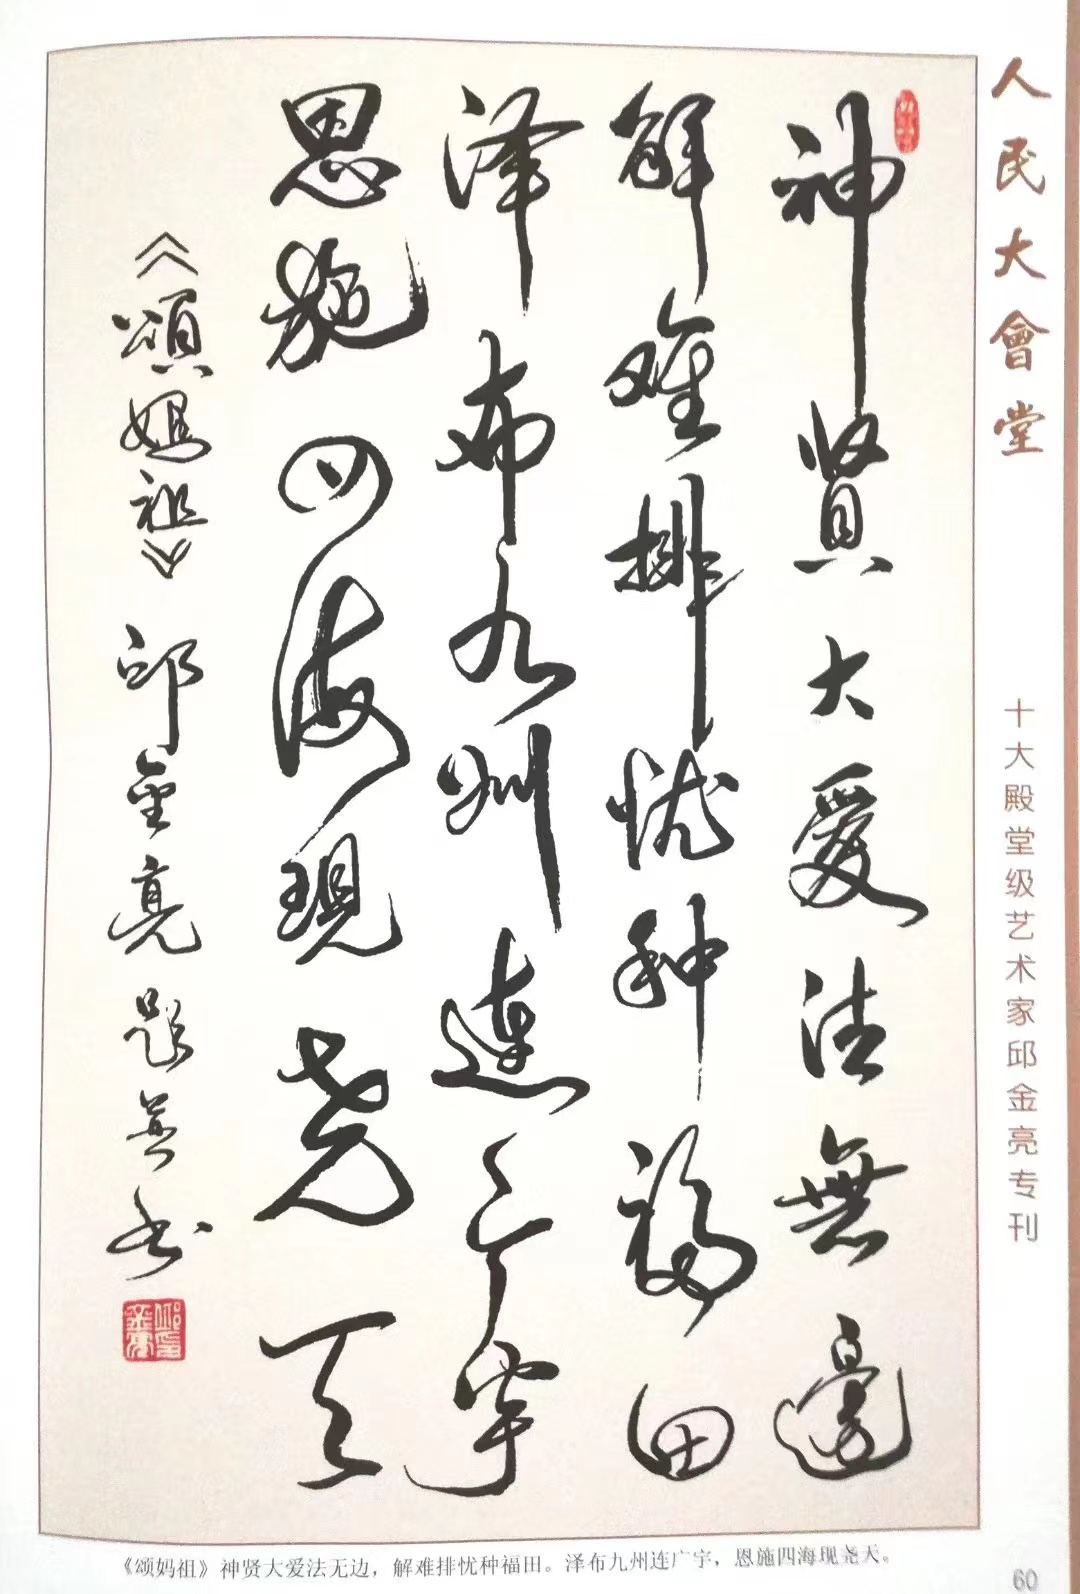 神贤大爱法無邊
解难排忧种福田
泽布九州连广宇
恩施四海現尧天
《頌妈祖》邱金亮题并书
人民大會堂
十大殿堂级艺术家邱金亮专刊
《颂妈祖》神贤大爱法无边，解难排忧种福田。泽布九州连广宇，恩施四海现尧天。
60